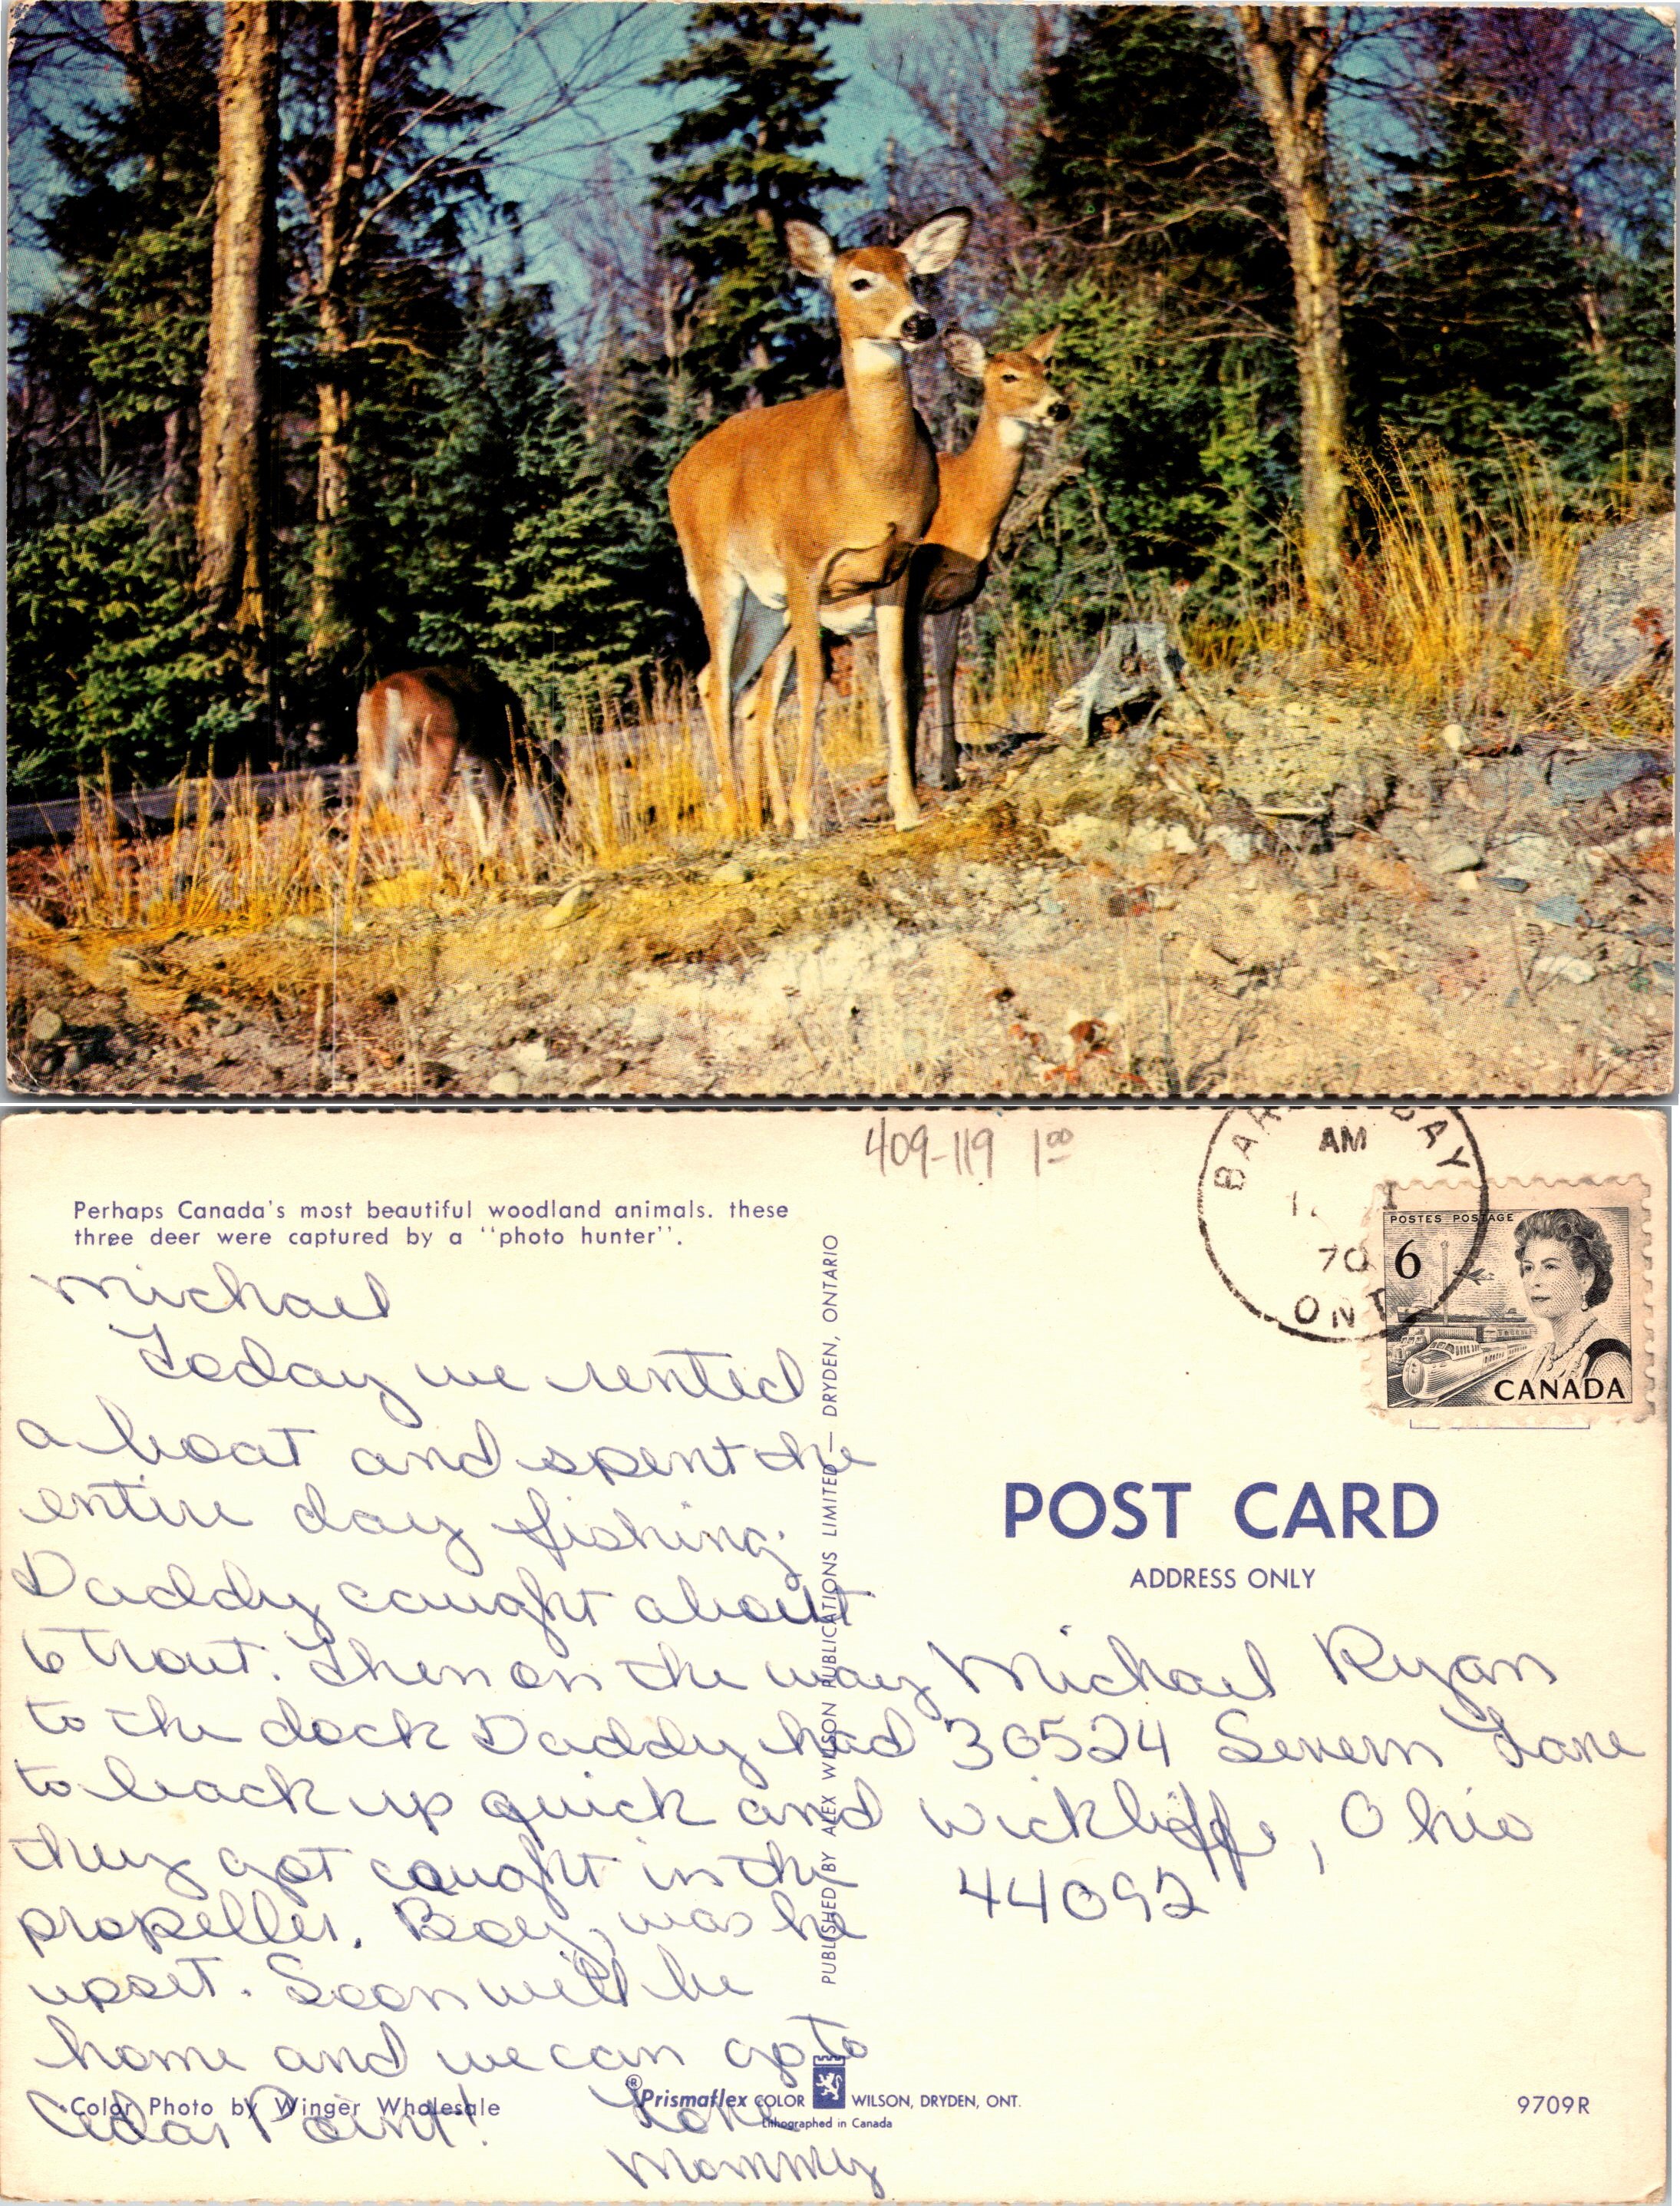 409-119 1 00
Perhaps Canada's most beautiful woodland animals. these
three deer were captured by a "photo hunter".
Michael
Today we rented
a boat and spent the
entire day fishing.
Daddy caught about
6 trout. Then on the way
to the dock Daddy had
to back up quick and
they got caught in the
propeller. Boy, was he
upset. Soon we'll be
home and we can go to
Cedar Point!
Love
Mommy
Color Photo by Winger Wholesale
PUBLISHED BY ALEX WILSON PUBLICATIONS LIMITED — DRYDEN, ONTARIO
®Prismaflex COLOR WILSON, DRYDEN, ONT.
Lithographed in Canada
AM
70
ONT
POSTES POSTAGE
6
CANADA
POST CARD
ADDRESS ONLY
Michael Ryan
30524 Severn Lane
Wickliffe, Ohio
44092
9709R